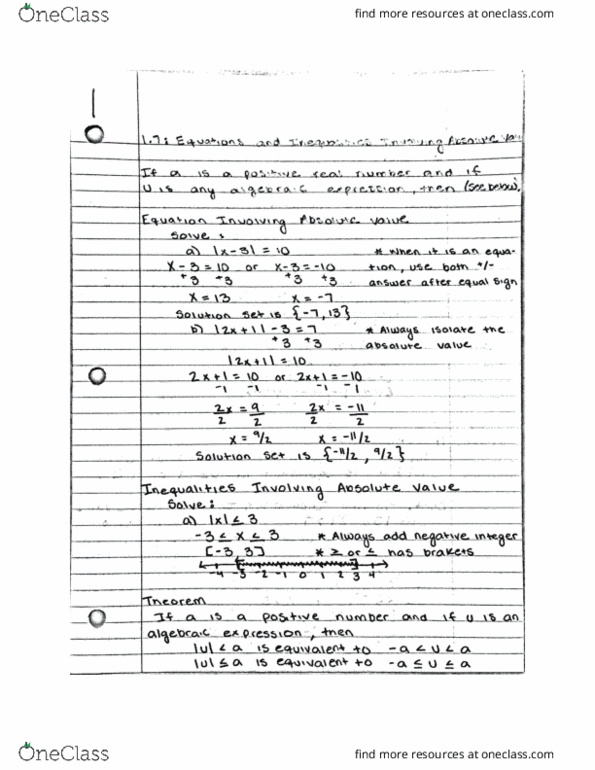 OneClass
find more resources at oneclass.com
1.7: Equations and Inequalities Involving Absolute Valu
If a is a positive real number and if
U is any algebraic expression, then (see below).
Equation Involving Absolute Value
Solve:
a) |x-3| = 10 * When it is an equa-
x-3=10 or x-3=-10 tion, use both +/-
+3 +3 +3 +3 answer after equal sign
x = 13 x = -7
Solution set is {-7, 13}
b) |2x+1| - 3 = 7 * Always isolate the
+3 +3 absolute value
|2x+1| = 10
2x+1 = 10 or 2x+1 = -10
-1 -1 -1 -1
2x = 9 2x = -11
2 2 2 2
x = 9/2 x = -11/2
Solution set is {-11/2, 9/2}
Inequalities Involving Absolute Value
Solve:
a) |x| ≤ 3
-3 ≤ x ≤ 3 * Always add negative integer
[-3, 3] * ≥ or ≤ has brakets
-4 -3 -2 -1 0 1 2 3 4
Theorem
If a is a positive number and if u is an
algebraic expression, then
|u| < a is equivalent to -a < u < a
|u| ≤ a is equivalent to -a ≤ u ≤ a
OneClass
find more resources at oneclass.com